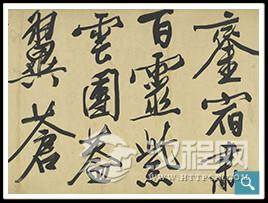 宿
百靈紫
雲團蓋
翼蒼
汉程网
WWW.HTTPCN.COM